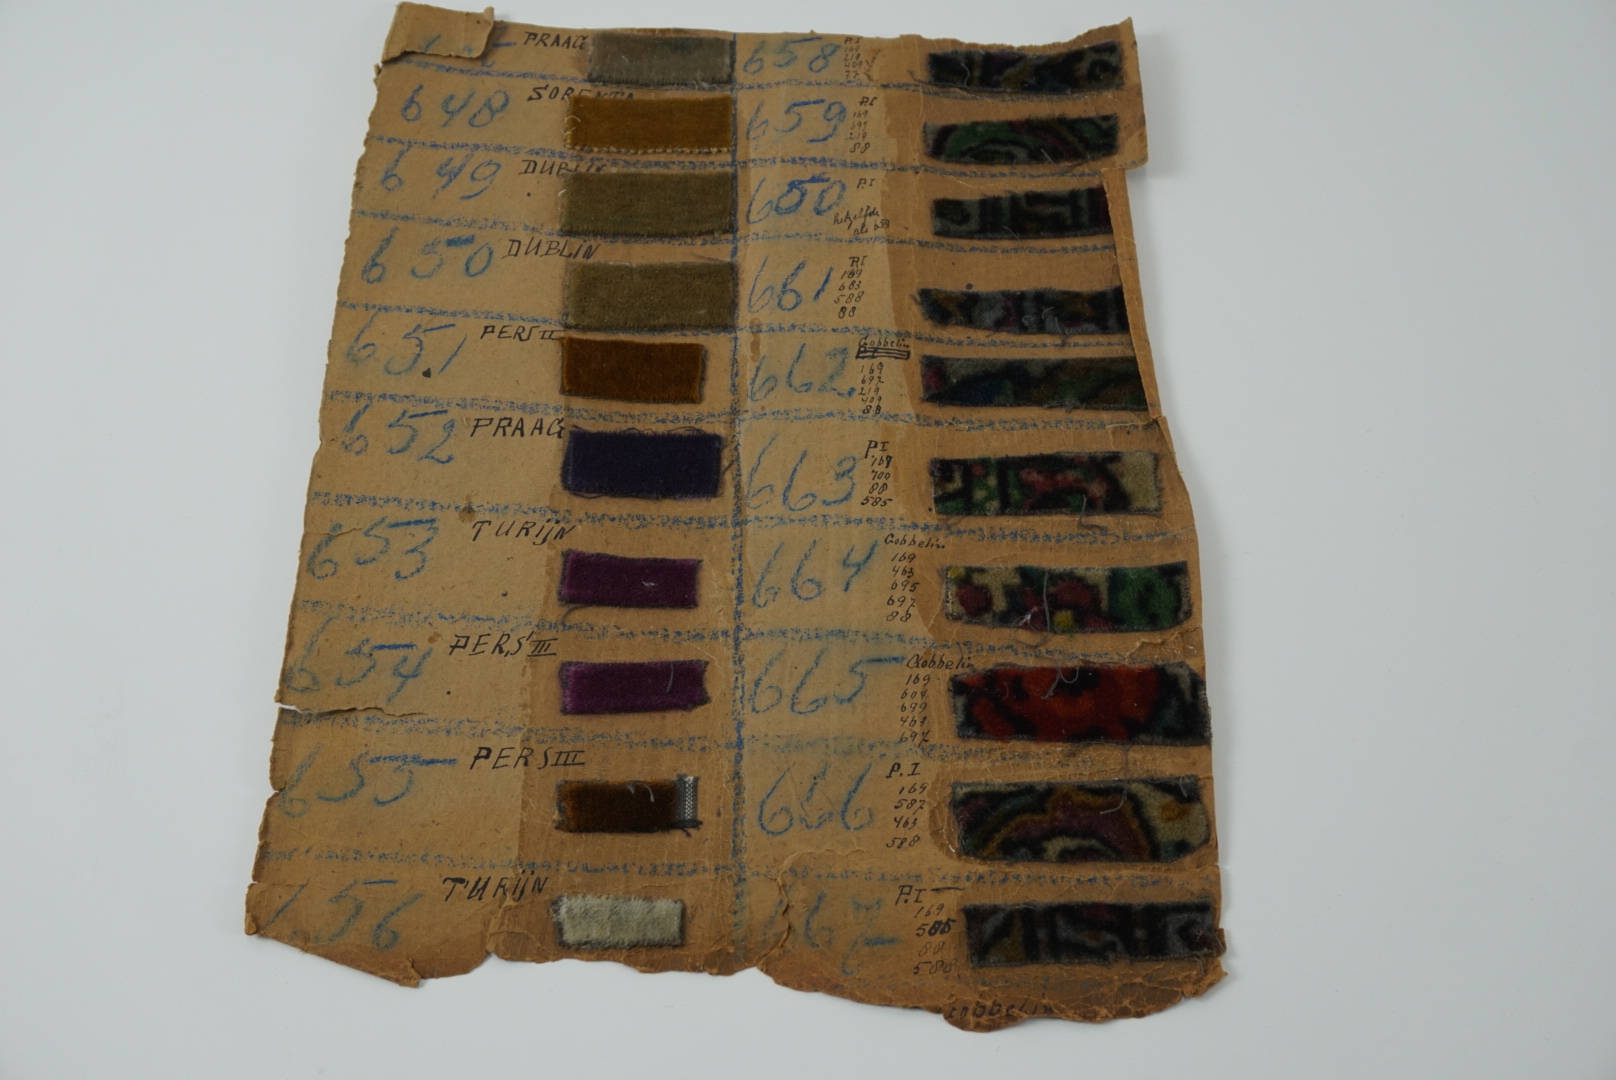 PRAAG
648 SORENTA
649 DUBLIN
650 DUBLIN
651 PERS II
652 PRAAG
653 TURIJN
654 PERS III
655 PERS III
656 TURIJN
658 P.I
169
219
409
77
659 P.I
169
697
219
88
650 P.I
hetzelfde
als 659
661 P.I
169
683
588
88
662 Gobbelin
169
697
219
409
88
663 P.I
169
700
88
585
664 Gobbelin
169
463
695
697
88
665 Gobbelin
169
604
699
463
697
666 P.I
169
587
463
588
667 P.I
169
585
88
588
Gobbelin